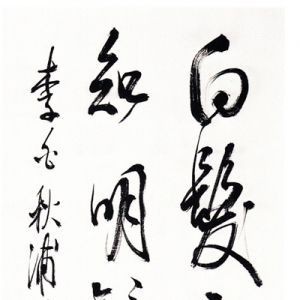 白髮
知明
李白秋浦